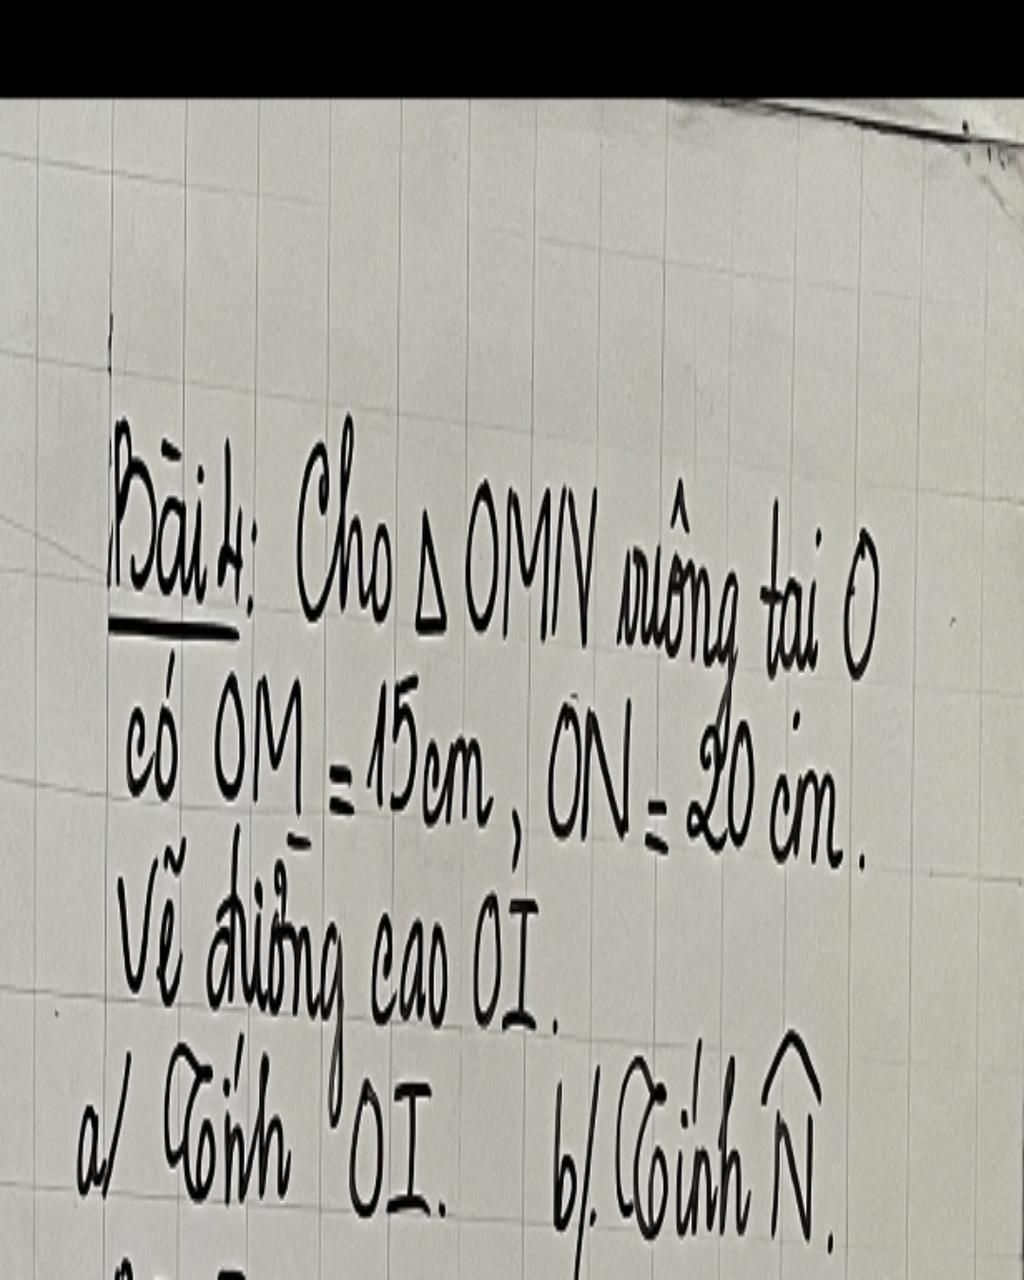 Bài 4: Cho Δ OMN vuông tại O
có OM = 15cm, ON = 20 cm.
Vẽ đường cao OI.
a/ Tính OI. b/. Tính N̂.